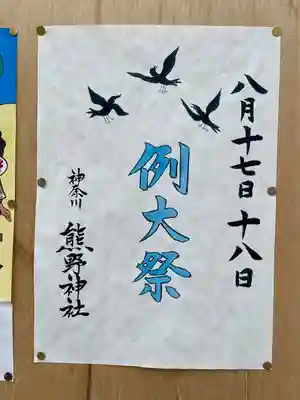 八月十七日十八日
例大祭
神奈川熊野神社